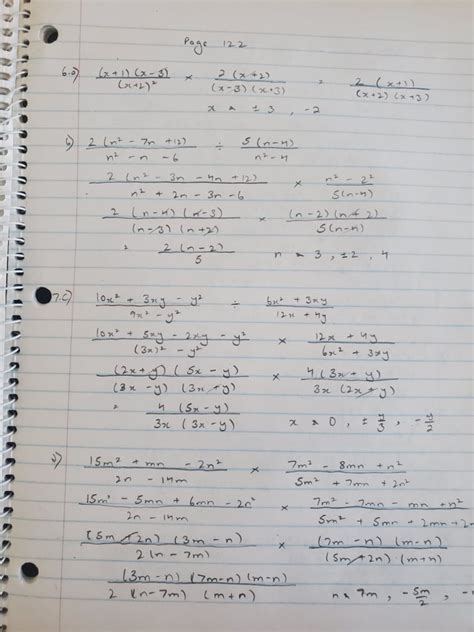 Page 122
6.a) (x+1)(x-3)/(x+2)² × 2(x+2)/(x-3)(x+3) = 2(x+1)/(x+2)(x+3)
x ≠ ±3, -2
b) 2(n² - 7n + 12)/n² - n - 6 ÷ 5(n-4)/n² - 4
2(n² - 3n - 4n + 12)/n² + 2n - 3n - 6 × n² - 2²/5(n-4)
2(n-4)(n-3)/(n-3)(n+2) × (n-2)(n+2)/5(n-4)
= 2(n-2)/5 n ≠ 3, ±2, 4
7.c) 10x² + 3xy - y²/9x² - y² ÷ 6x² + 3xy/12x + 4y
10x² + 5xy - 2xy - y²/(3x)² - y² × 12x + 4y/6x² + 3xy
(2x+y)(5x-y)/(3x-y)(3x+y) × 4(3x+y)/3x(2x+y)
= 4(5x-y)/3x(3x-y) x ≠ 0, ±y/3, -y/2
d) 15m² + mn - 2n²/2n - 14m × 7m² - 8mn + n²/5m² + 7mn + 2n²
15m² - 5mn + 6mn - 2n²/2n - 14m × 7m² - 7mn - mn + n²/5m² + 5mn + 2mn + 2n
(5m+2n)(3m-n)/2(n-7m) × (7m-n)(m-n)/(5m+2n)(m+n)
(3m-n)(7m-n)(m-n)/2(n-7m)(m+n) n ≠ 7m, -5m/2, -